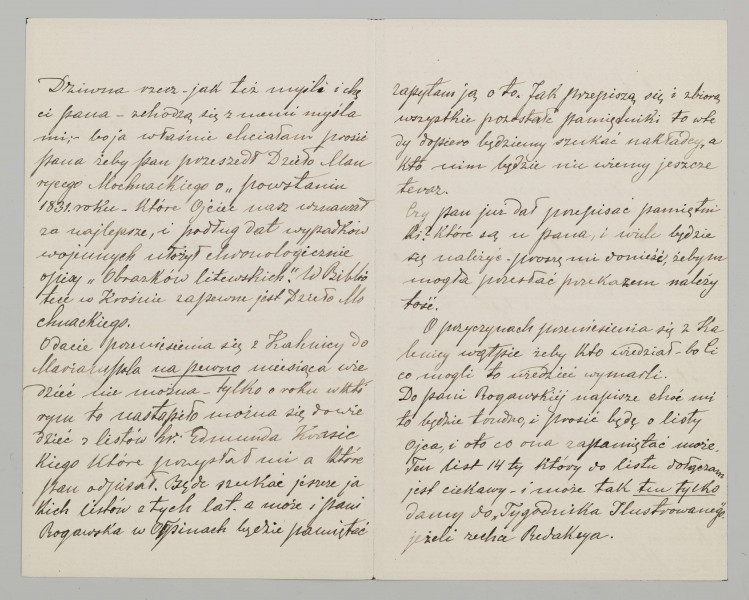 Dziwna rzecz – jak też myśli i chę
ci pana – schodzą się z memi myśla
mi; – bo ja właśnie chciałam prosić
pana żeby pan przeszedł Dzieło Mau
rycego Mochnackiego o „powstaniu
1831. roku – które Ojciec nasz uznawał
za najlepsze, i podług dat wypadków
wojennych ułożył chronologicznie
opisy „Obrazków litewskich". W Biblio
tece w Krośnie zapewne jest Dzieło Mo
chnackiego.
O dacie przeniesienia się z Kalnicy do
Mariampola na pewno miesiąca wie
dzieć nie można – tylko o roku w któ
rym to nastąpiło można się dowie
dzieć z listów hr: Edmunda Krasic
kiego które przysłał mi a które
pan odpisał. Będę szukać jeszcze ja
kich listów z tych lat. a może i pani
Rogawska w Ołpinach będzie pamiętać
zapytam ją o to. Jak przepiszą się i zbiorą
wszystkie pozostałe pamiętniki to wte
dy dopiero będziemy szukać nakładcy, a
kto nim będzie nie wiemy jeszcze
teraz.
Czy pan już dał przepisać pamiętni
ki? które są u pana, i wiele będzie
się należyć – proszę mi donieść, żebym
mogła przesłać przekazem należy
tość.
O przyczynach przeniesienia się z Ka
lnicy wątpię żeby kto wiedział – bo ci
co mogli to wiedzieć wymarli.
Do pani Rogawskiéj napiszę choć mi
to będzie trudno, i prosić będę o listy
Ojca, i oto co ona zapamiętać może.
Ten list 14ty który do listu dołączam
jest ciekawy – i może tak ten tylko
damy do „Tygodnika Ilustrowanego",
jeżeli zechce Redakcya.